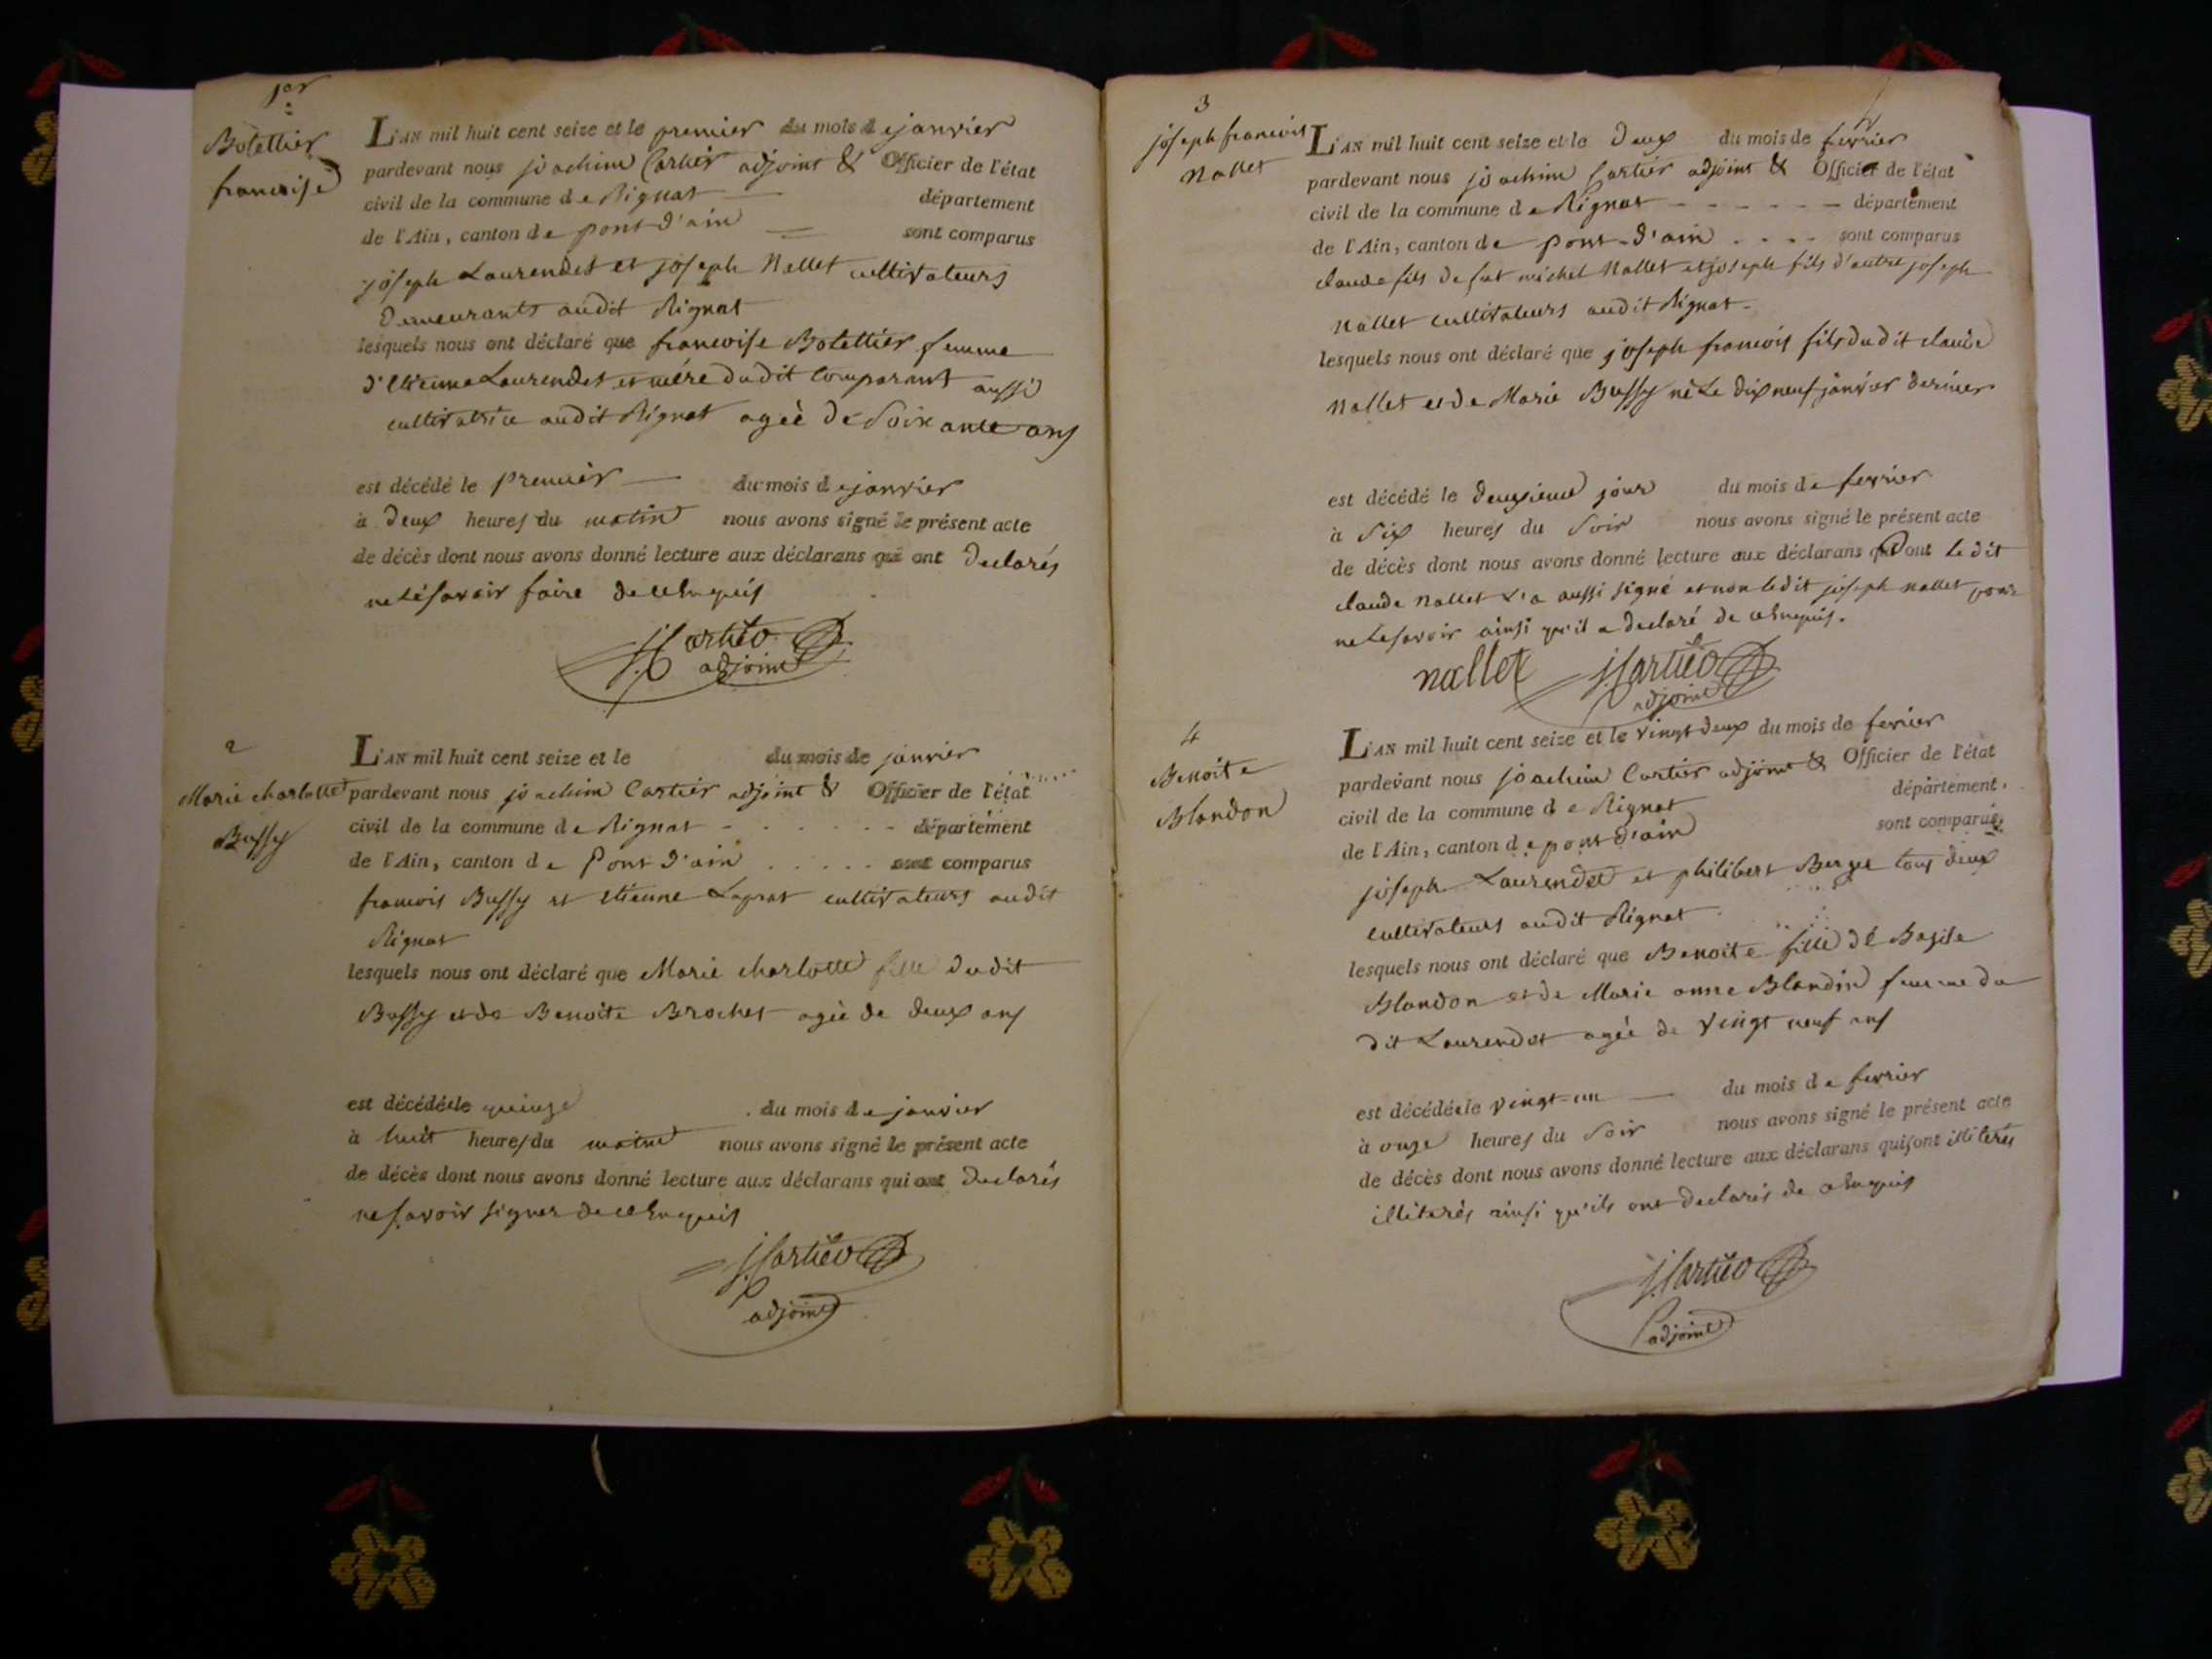 1er
Botellier
francoise
L'AN mil huit cent seize et le premier du mois de janvier
pardevant nous joachim Cartier adjoint & Officier de l'état
civil de la commune de Rignat département
de l'Ain, canton de pont d'ain sont comparus
joseph Laurendet et joseph Nallet cultivateurs
demeurants audit Rignat
lesquels nous ont déclaré que francoise Botellier femme
d'etienne Laurendet et mère dudit Comparant aussi
cultivatrice audit Rignat agèe de Soixante ans
est décédé le premier du mois de janvier
à deux heures du matin nous avons signé le présent acte
de décès dont nous avons donné lecture aux déclarans qui ont declarés
ne le savoir faire de ce Enquis
J. Cartier
adjoint
2
Marie charlotte
Bussy
L'AN mil huit cent seize et le du mois de janvier
pardevant nous joachim Cartier adjoint & Officier de l'état
civil de la commune de Rignat département
de l'Ain, canton de Pont d'ain sont comparus
francois Bussy et etienne Lagrat cultivateurs audit
Rignat
lesquels nous ont déclaré que Marie charlotte fille dudit
Bussy et de Benoite Brochet agèe de deux ans
est décédée le quinze du mois de janvier
à huit heures du matin nous avons signé le présent acte
de décès dont nous avons donné lecture aux déclarans qui ont declarés
ne savoir signer de ce Enquis
J. Cartier
adjoint
3
joseph francois
Nallet
L'AN mil huit cent seize et le deux du mois de fevrier
pardevant nous joachim Cartier adjoint & Officier de l'état
civil de la commune de Rignat département
de l'Ain, canton de pont-d'ain sont comparus
claude fils de feu michel Nallet et joseph fils d'autre joseph
Nallet cultivateurs audit Rignat.
lesquels nous ont déclaré que joseph francois fils dudit claude
Nallet et de Marie Bussy né Le dix neuf janvier dernier
est décédé le deuxieme jour du mois de fevrier
à Six heures du Soir nous avons signé le présent acte
de décès dont nous avons donné lecture aux déclarans Dont Le dit
claude Nallet L'a aussi signé et non ledit joseph nallet pour
ne Le savoir ainsi qu'il a declaré de ce Enquis.
nallet J. Cartier
adjoint
4
Benoite
Blandon
L'AN mil huit cent seize et le vingt deux du mois de fevrier
pardevant nous joachim Cartier adjoint & Officier de l'état
civil de la commune de Rignat département
de l'Ain, canton de pont d'ain sont comparus
joseph Laurendet et philibert Berger tous deux
cultivateurs audit Rignat
lesquels nous ont déclaré que Benoite fille de Basile
Blandon et de Marie anne Blandin femme du
dit Laurendet agèe de vingt neuf ans
est décédée le vingt-un du mois de fevrier
à onze heures du Soir nous avons signé le présent acte
de décès dont nous avons donné lecture aux déclarans qui sont illiterés
illiterés ainsi qu'ils ont declarés de ce Enquis
J. Cartier
adjoint